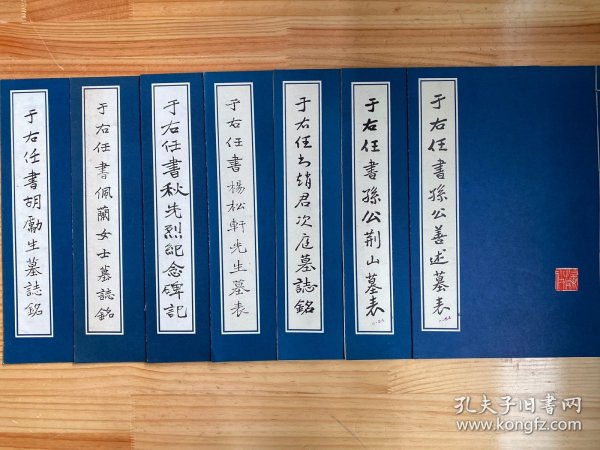 于右任書胡勵生墓誌銘
于右任書佩蘭女士墓誌銘
于右任書秋先烈紀念碑記
于右任書楊松軒先生墓表
于右任書趙君次庭墓誌銘
于右任書孫公荆山墓表
于右任書孫公善述墓表
孔夫子旧书网
www.kongfz.com